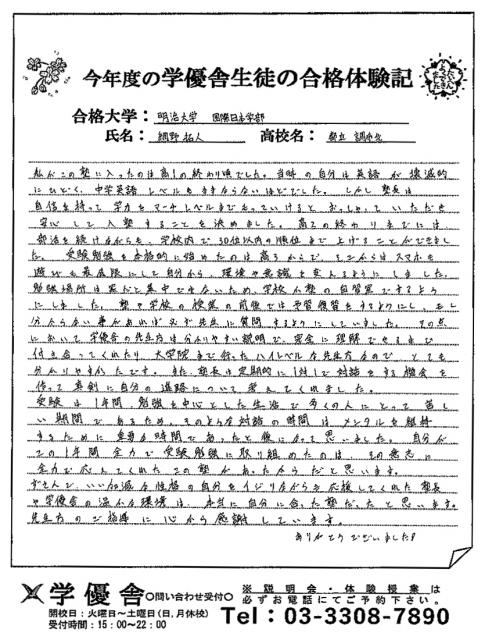 今年度の学優舎生徒の合格体験記
合格大学： 明治大学 国際日本学部
氏名： 細野 拓人 高校名： 都立 調布北
私がこの塾に入ったのは高1の終わり頃でした。当時の自分は英語が壊滅的
にひどく、中学英語レベルもままならないほどでした。しかし塾長は
自信を持って学力をマーチレベルまでもっていけるとおっしゃっていただき
安心して入塾することを決めました。高2の終わりまでには
部活を続けながらも、学校内で30位以内の順位まで上げることができまし
た。受験勉強を本格的に始めたのは高3からで、そこからはスマホも
遊びも最低限にして自分から、環境や意識を変えるようにしました。
勉強場所は家だと集中できないため、学校か塾の自習室でするよう
にしました。塾や学校の授業の前後では予習復習をするようにし、もし
分からない事があれば必ず先生に質問するようにしていました。その点
において学優舎の先生方は分かりやすい説明で、完全に理解できるまで
付き合ってくれたり、大学院まで行ったハイレベルな先生方なので、とても
分かりやすかったです。また、塾長は定期的に1対1で対話をする機会を
作って真剣に自分の進路について考えてくれました。
受験は1年間、勉強を中心とした生活で多くの人にとって苦し
い期間であるため、そのような対話の時間はメンタルを維持
するために重要な時間であったと後になって思いました。自分が
この1年間全力で受験勉強に取り組めたのは、その意志に
全力で応えてくれたこの塾があったからだと思います。
ずさんで、いい加減な性格の自分をイジりながらも応援してくれた塾長
や学優舎の温かな環境は、本当に自分に合った塾だったと思います。
先生方のご指導に心から感謝しています。
ありがとうございました！
学優舎 〇問い合わせ受付〇
開校日：火曜日〜土曜日（日，月休校）
受付時間：15：00〜22：00
※説明会・体験授業は
必ずお電話にてご予約下さい。
Tel：03-3308-7890